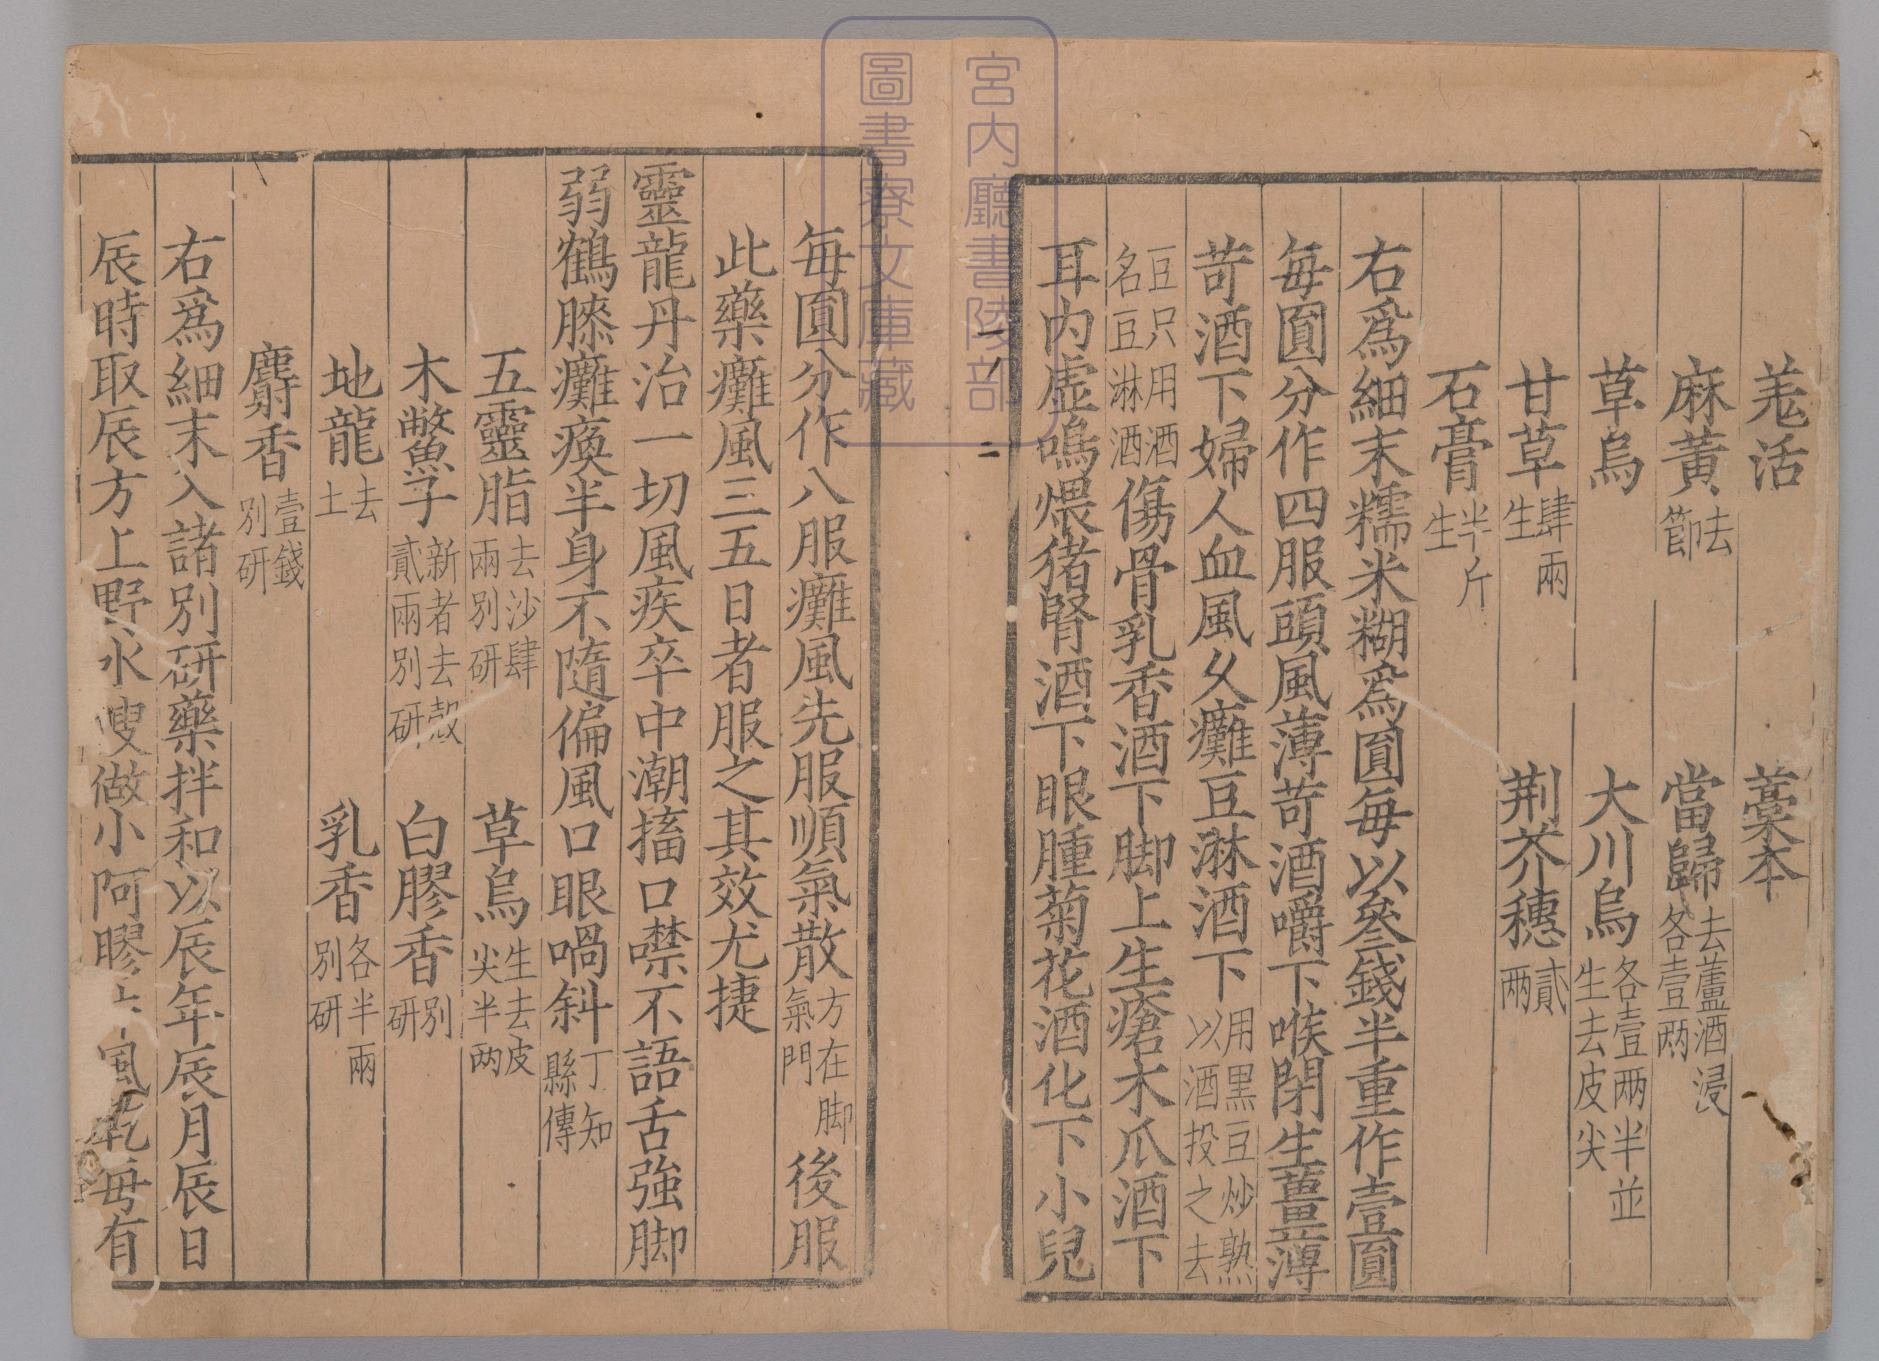 羗活 藁本
麻黄去節 當歸去蘆酒浸各壹两
草烏 大川烏各壹两半並生去皮尖
甘草肆兩生 荆芥穗貳两
石膏半斤生
右爲細末糯米糊爲圓每以叄錢半重作壹圓
每圓分作四服頭風薄苛酒嚼下喉閉生薑薄
苛酒下婦人血風久癱豆淋酒下用黑豆炒熟以酒投之去
豆只用酒名豆淋酒傷骨乳香酒下脚上生瘡木瓜酒下
耳内虚鳴煨猪腎酒下眼腫菊花酒化下小兒
每圓分作八服癱風先服順氣散方在脚氣門後服
此藥癱風三五日者服之其效尤捷
靈龍丹治一切風疾卒中潮搐口噤不語舌強脚
弱鶴膝癱瘓半身不隨偏風口眼喎斜丁知縣傳
五靈脂去沙肆兩别研 草烏生去皮尖半两
木鱉子新者去殻貳兩别研 白膠香别研
地龍去土 乳香各半兩别研
麝香壹錢别研
右爲細末入諸别研藥拌和以辰年辰月辰日
辰時取辰方上野水溲做小阿膠片風乾每有
宮内廳書陵部
圖書寮文庫藏